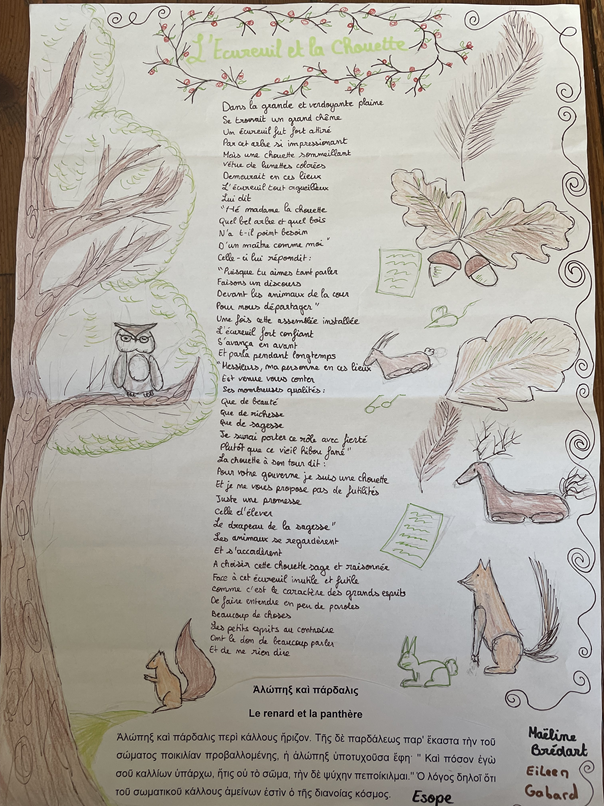 L'Ecureuil et la Chouette
Dans la grande et verdoyante plaine
Se trouvait un grand chêne
Un écureuil fut fort attiré
Par cet arbre si impressionant
Mais une chouette sommeillant
Vêtue de lunettes colorées
Demeurait en ces lieux
L'écureuil tout orgueilleux
Lui dit
"Hé madame la chouette
Quel bel arbre et quel bois
N'a t-il point besoin
D'un maître comme moi"
Celle-ci lui répondit :
"Puisque tu aimes tant parler
Faisons un discours
Devant les animaux de la cour
Pour nous départager"
Une fois cette assemblée installée
L'écureuil fort confiant
S'avança en avant
Et parla pendant longtemps
"Messieurs, ma personne en ces lieux
Est venue vous conter
Ses nombreuses qualités :
Que de beauté
Que de richesse
Que de sagesse
Je saurai porter ce rôle avec fierté
Plutôt que ce vieil hibou fané"
La chouette à son tour dit :
Pour votre gouverne je suis une chouette
Et je ne vous propose pas de futilités
Juste une promesse
Celle d'élever
Le drapeau de la sagesse"
Les animaux se regardèrent
Et s'accordèrent
A choisir cette chouette sage et raisonnée
Face à cet écureuil inutile et futile
Comme c'est le caractère des grands esprits
De faire entendre en peu de paroles
Beaucoup de choses
Les petits esprits au contraire
Ont le don de beaucoup parler
Et de ne rien dire
Ἀλώπηξ καὶ πάρδαλις
Le renard et la panthère
Ἀλώπηξ καὶ πάρδαλις περὶ κάλλους ἤριζον. Τῆς δὲ παρδάλεως παρ' ἕκαστα τὴν τοῦ
σώματος ποικιλίαν προβαλλομένης, ἡ ἀλώπηξ ὑποτυχοῦσα ἔφη· " Καὶ πόσον ἐγὼ
σοῦ καλλίων ὑπάρχω, ἥτις οὐ τὸ σῶμα, τὴν δὲ ψυχὴν πεποίκιλμαι." Ὁ λόγος δηλοῖ ὅτι
τοῦ σωματικοῦ κάλλους ἀμείνων ἐστὶν ὁ τῆς διανοίας κόσμος.
Esope
Maëline
Brédart
Eileen
Gabard